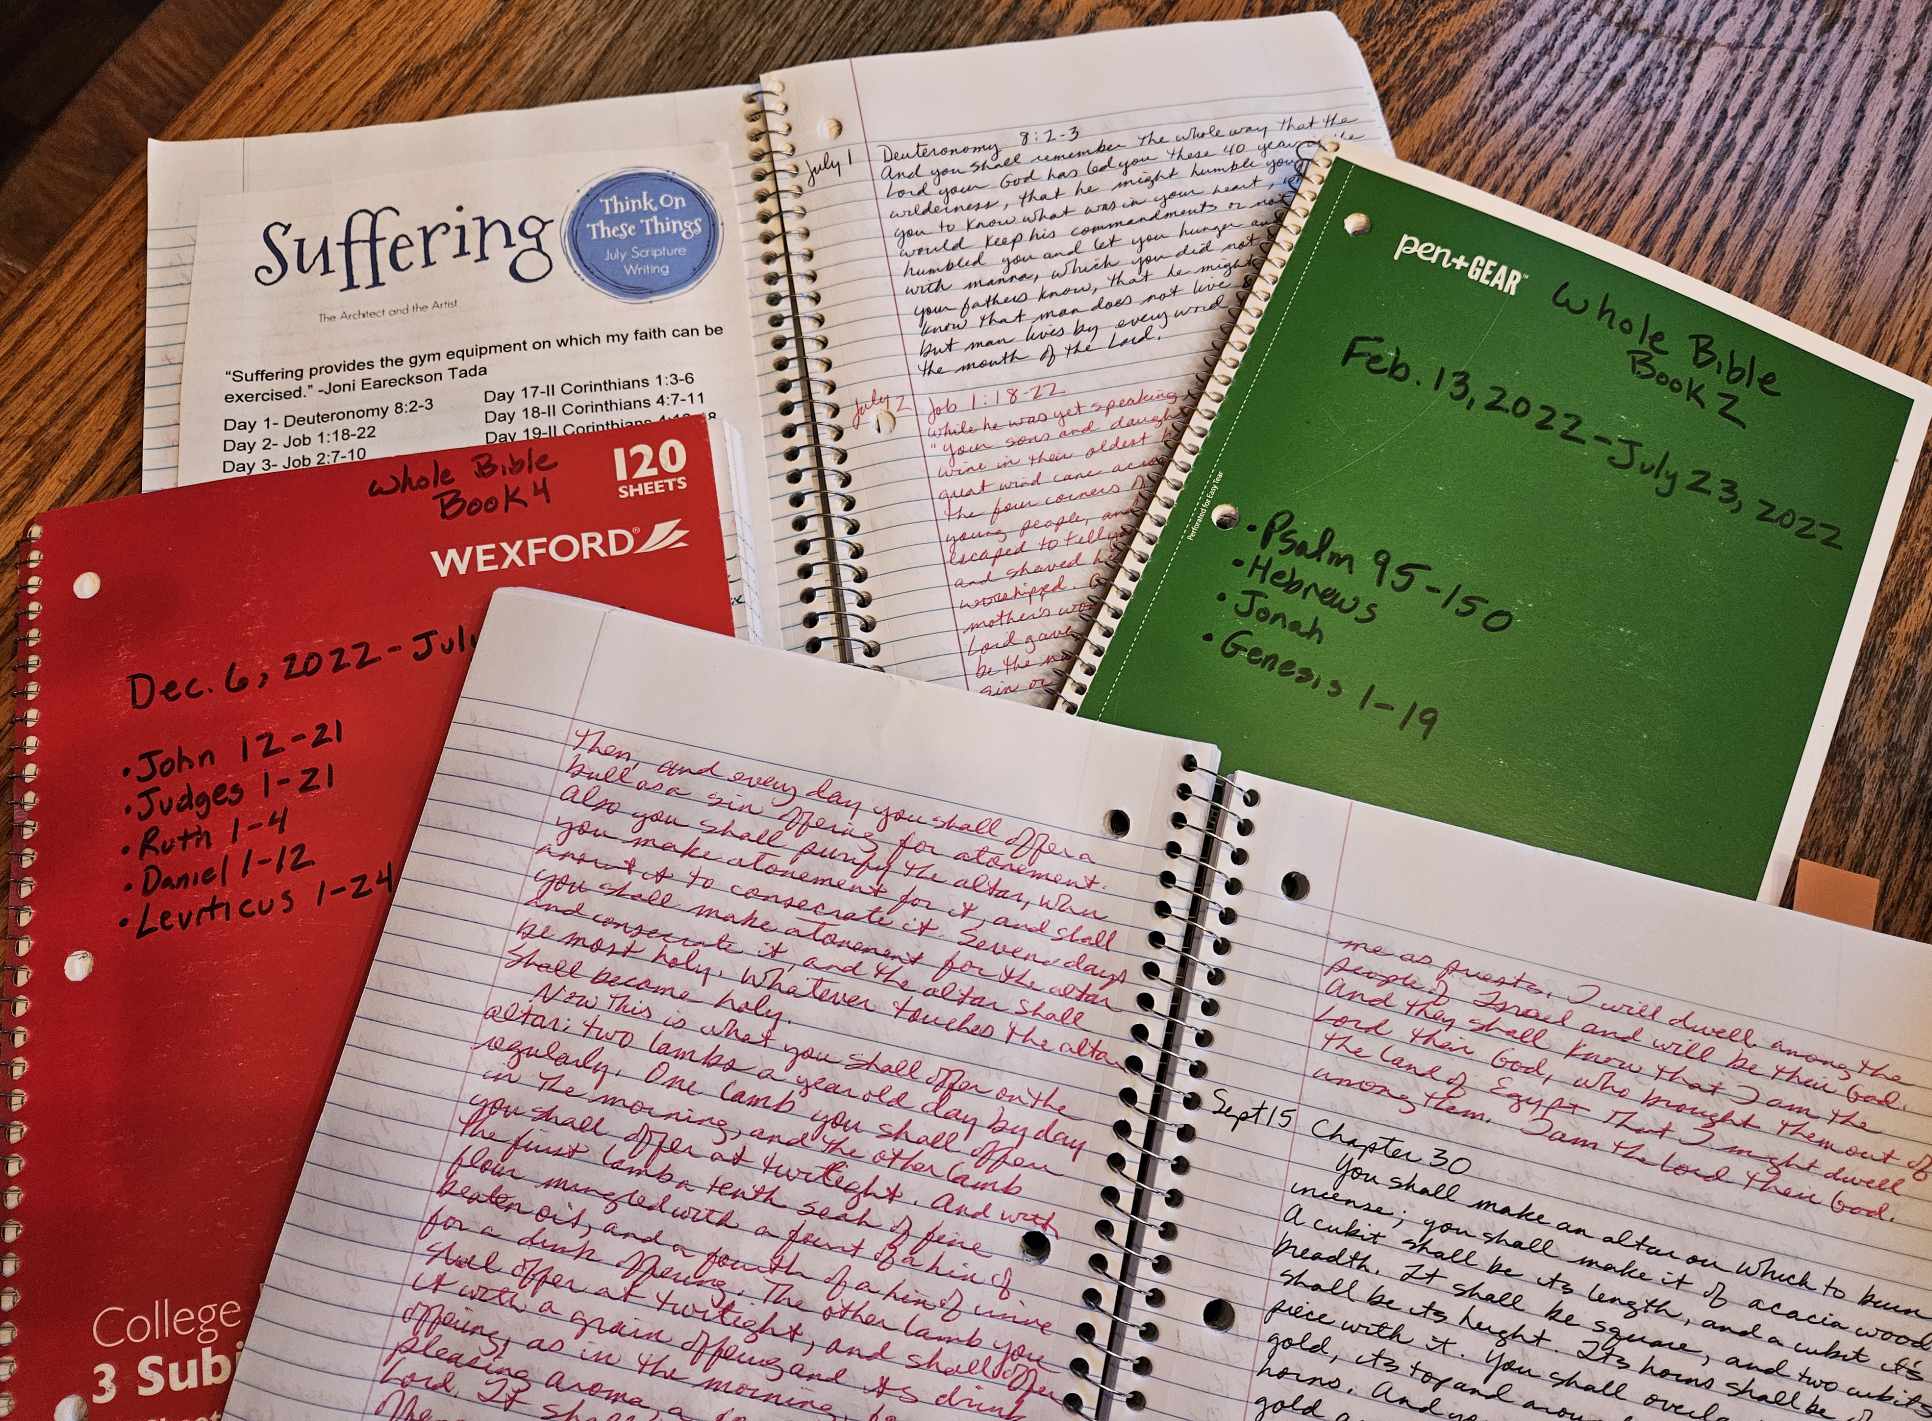 Suffering
Think On
These Things
July Scripture
Writing
The Architect and the Artist
"Suffering provides the gym equipment on which my faith can be
exercised." -Joni Eareckson Tada
Day 1- Deuteronomy 8:2-3
Day 2- Job 1:18-22
Day 3- Job 2:7-10
Day 17-II Corinthians 1:3-6
Day 18-II Corinthians 4:7-11
Day 19-II Corinthians
July 1
Deuteronomy 8:2-3
And you shall remember the whole way that the
Lord your God has led you these 40 years
wilderness, that he might humble you
you to know what was in your heart,
would keep his commandments or not
humbled you and let you hunger and
with manna, which you did not
your fathers know, that he might
know that man does not live
but man lives by every word
the mouth of the Lord.
July 2
Job 1:18-22
While he was yet speaking
"your sons and daugh
wine in their oldest b
great wind came acro
the four corners
young people, and
escaped to tell y
and shaved h
worshipped.
mother's wo
Lord gave
be the na
sin or
pen+GEAR
Whole Bible
Book 2
Feb. 13, 2022-July 23, 2022
Perforated for Easy Tear
• Psalm 95-150
• Hebrews
• Jonah
• Genesis 1-19
Whole Bible
Book 4
120
SHEETS
WEXFORD
Dec. 6, 2022-July
• John 12-21
• Judges 1-21
• Ruth 1-4
• Daniel 1-12
• Leviticus 1-24
College
3 Subj
Then, and every day you shall offer a
bull as a sin offering for atonement.
Also you shall purify the altar, when
you make atonement for it, and shall
anoint it to consecrate it. Seven days
you shall make atonement for the altar
and consecrate it, and the altar shall
be most holy. Whatever touches the altar
shall become holy.
Now this is what you shall offer on the
altar: two lambs a year old day by day
regularly. One lamb you shall offer
in the morning, and the other lamb
you shall offer at twilight. And with
the first lamb a tenth seah of fine
flour mingled with a fourth of a hin of
beaten oil, and a fourth of a hin of wine
for a drink offering. The other lamb you
shall offer at twilight, and shall offer
it with a grain offering and its drink
offering, as in the morning,
pleasing aroma, a
Lord. It sha
me as priests. I will dwell among the
people of Israel and will be their God.
And they shall know that I am the
Lord their God, who brought them out of
the land of Egypt that I might dwell
among them. I am the Lord their God.
Sept 15
Chapter 30
You shall make an altar on which to burn
incense; you shall make it of acacia wood
A cubit shall be its length, and a cubit its
breadth. It shall be square, and two cubits
shall be its height. Its horns shall be
piece with it. You shall overla
gold, its top and aroun
horns. And
gold